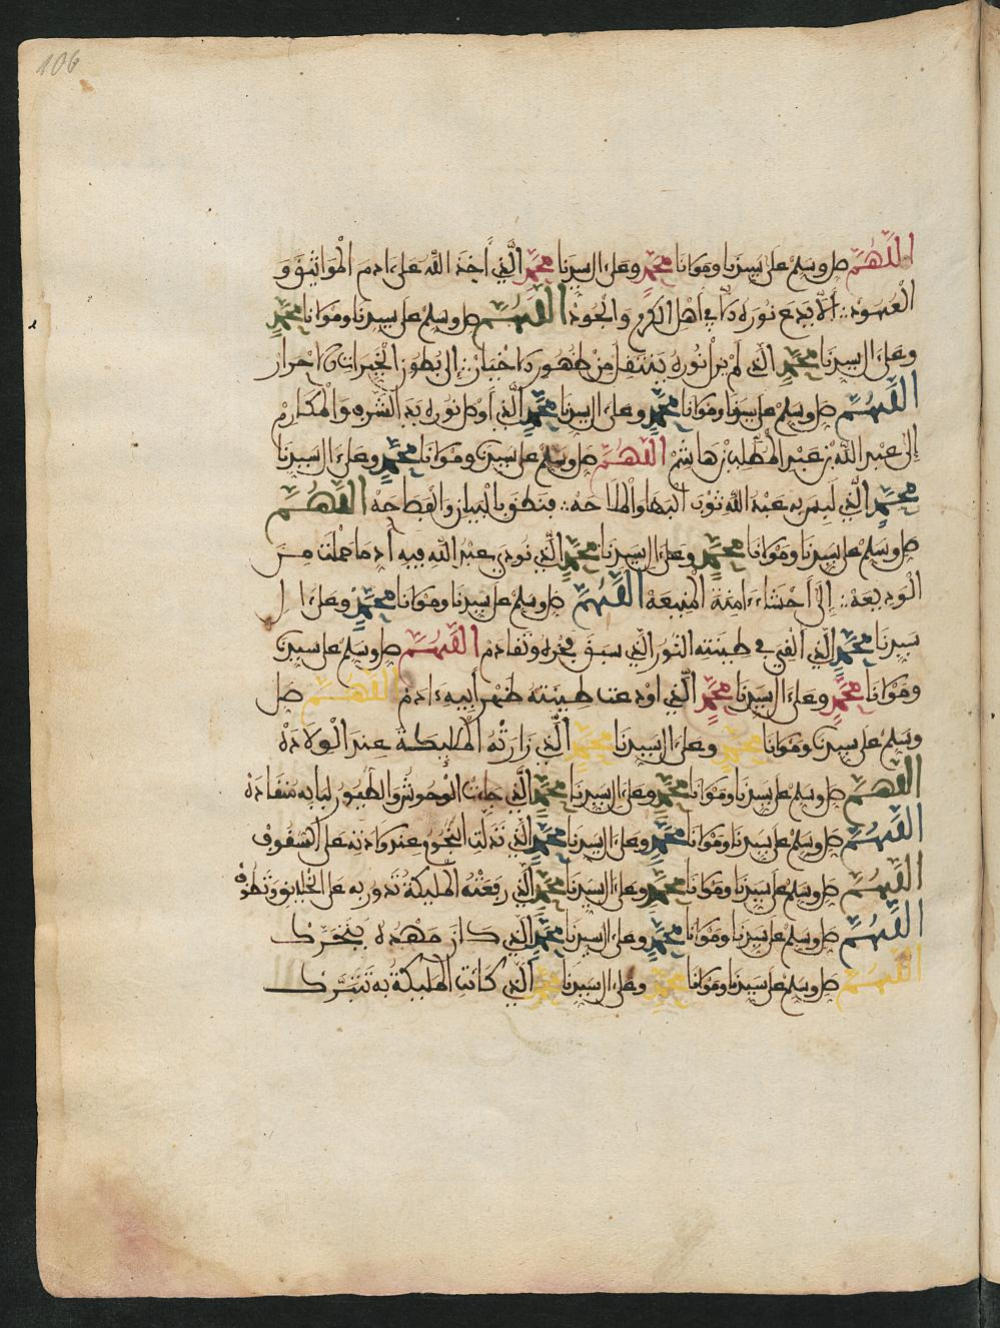 106
اللهم صل وسلم على سيدنا ومولانا محمد وعلى ءال سيدنا محمد الذي أخذ الله على ءادم المواثيق و
العهود ألا يدع نوره في أهل الكرم والجود اللهم صل وسلم على سيدنا ومولانا محمد
وعلى ءال سيدنا محمد الذي لم يزل نوره ينتقل من ظهور الاخيار إلى بطون الخيرات الاحرار
اللهم صل وسلم على سيدنا ومولانا محمد وعلى ءال سيدنا محمد الذي أوصل نوره يد الشرف والمكارم
إلى عبد الله بن عبد المطلب بن هاشم اللهم صل وسلم على سيدنا ومولانا محمد وعلى ءال سيدنا
محمد الذي لبس به عبد الله ثوب البها والملاحه فنطق بالبيان والفصاحه اللهم
صل وسلم على سيدنا ومولانا محمد وعلى ءال سيدنا محمد الذي نودي عبد الله فيه أد ما حملت من
الوديعة إلى أحشاء ءامنة المنيعة اللهم صل وسلم على سيدنا ومولانا محمد وعلى ءال
سيدنا محمد الذي ألقي في طينته النور الذي سبق فخره وتقادم اللهم صل وسلم على سيدنا
ومولانا محمد وعلى ءال سيدنا محمد الذي اودعت طينته ظهر أبيه ءادم اللهم صل
وسلم على سيدنا ومولانا محمد وعلى ءال سيدنا محمد الذي زارته الملـيكة عند الولادة
اللهم صل وسلم على سيدنا ومولانا محمد وعلى ءال سيدنا محمد الذي جاءت الوحوش والطيور لبابه منقادة
اللهم صل وسلم على سيدنا ومولانا محمد وعلى ءال سيدنا محمد الذي تدلت النجوم عند ولادته على السقوف
اللهم صل وسلم على سيدنا ومولانا محمد وعلى ءال سيدنا محمد الذي رفعته المليكة تدور به على الخلايق وتطوف
اللهم صل وسلم على سيدنا ومولانا محمد وعلى ءال سيدنا محمد الذي كان مهده يتحرك
اللهم صل وسلم على سيدنا ومولانا محمد وعلى ءال سيدنا محمد الذي كانت المليكة به تتبرك